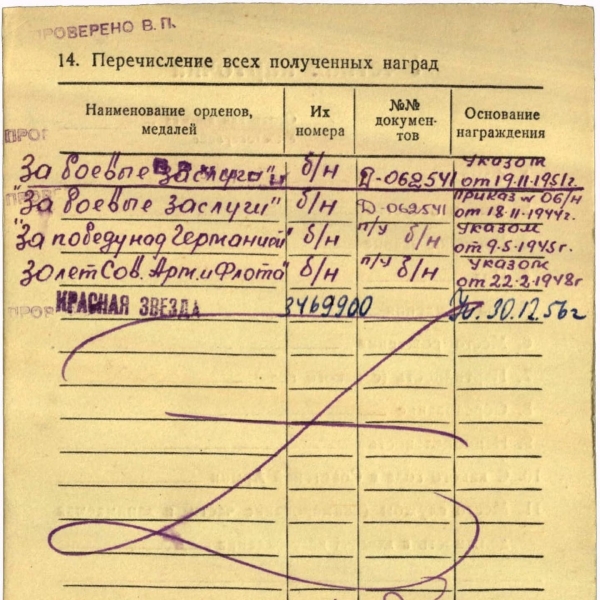 ПРОВЕРЕНО В. П.
14. Перечисление всех полученных наград
Наименование орденов, медалей
Их номера
№№ докумен-тов
Основание награждения
"За боевые заслуги" б/н Д-062541 Указом от 19.11.1951г.
"За боевые заслуги" б/н Д-062541 Приказ № 06/н от 18.11.1944г.
"За победу над Германией" б/н п/у б/н Указом от 9.5.1945г.
30 лет Сов. Арм. и Флота" б/н п/у б/н Указом от 22.2.1948г
КРАСНАЯ ЗВЕЗДА 3469900 Ук. 30.12.56г